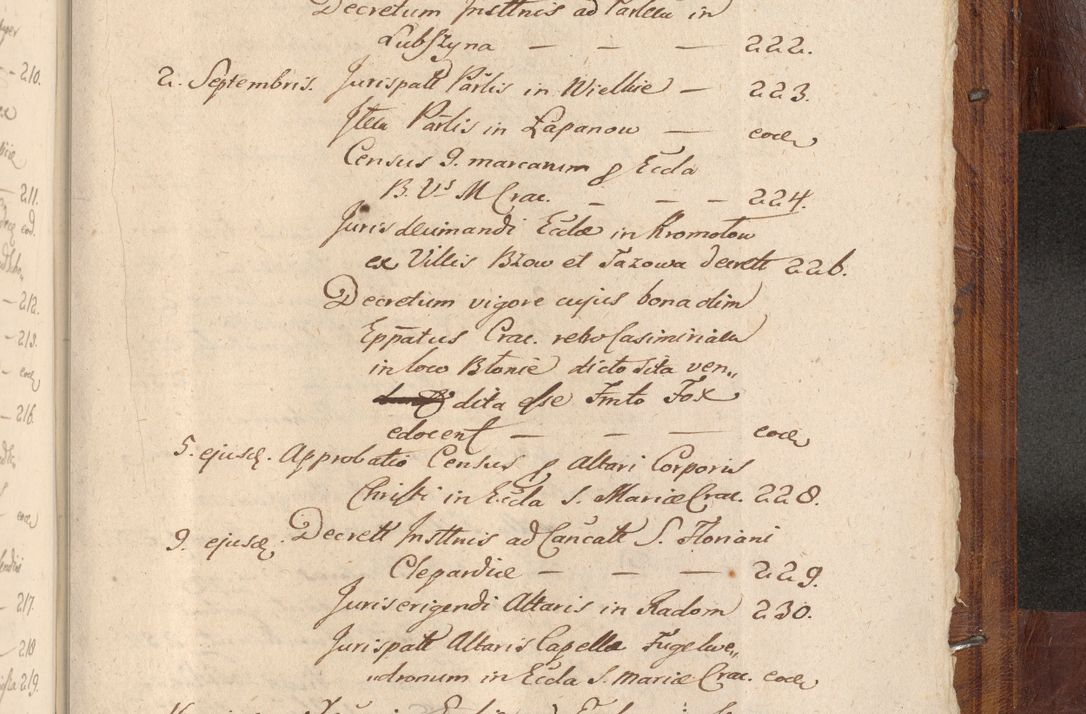 Decretum Insttnis ad Parlem in
Lubszyna — — — 222.
2. Septembris. Jurispatt Parlis in Wielkie — 223.
Item Parlis in Łapanow — eod
Census 9. marcarum p Eccla
B. Vs M Crac. — — — 224.
Juris decimandi Ecclæ in Kromołow
ex Villis Bzow et Jazowa decrett 226.
Decretum vigore cujus bona dim
Eppatus Crac. retro Casimiriam
in loco Błonie dicto sita ven„
dita esse Fmto Fox
edocent — — — eod
5. ejusd. Approbatio Census p Altari Corporis
Christi in Eccla S. Mariæ Crac. 228.
9. ejusd. Decrett Insttnis ad Cancatt S. Floriani
Clepardiæ — — — 229.
Juris erigendi Altaris in Radom 230.
Jurispatt Altaris Capellæ Fugelwe„
udronum in Eccla S. Mariæ Crac. eod
210.
211.
eod.
— 212.
— 213.
— eod
— 216.
eod
— 217.
218
219.